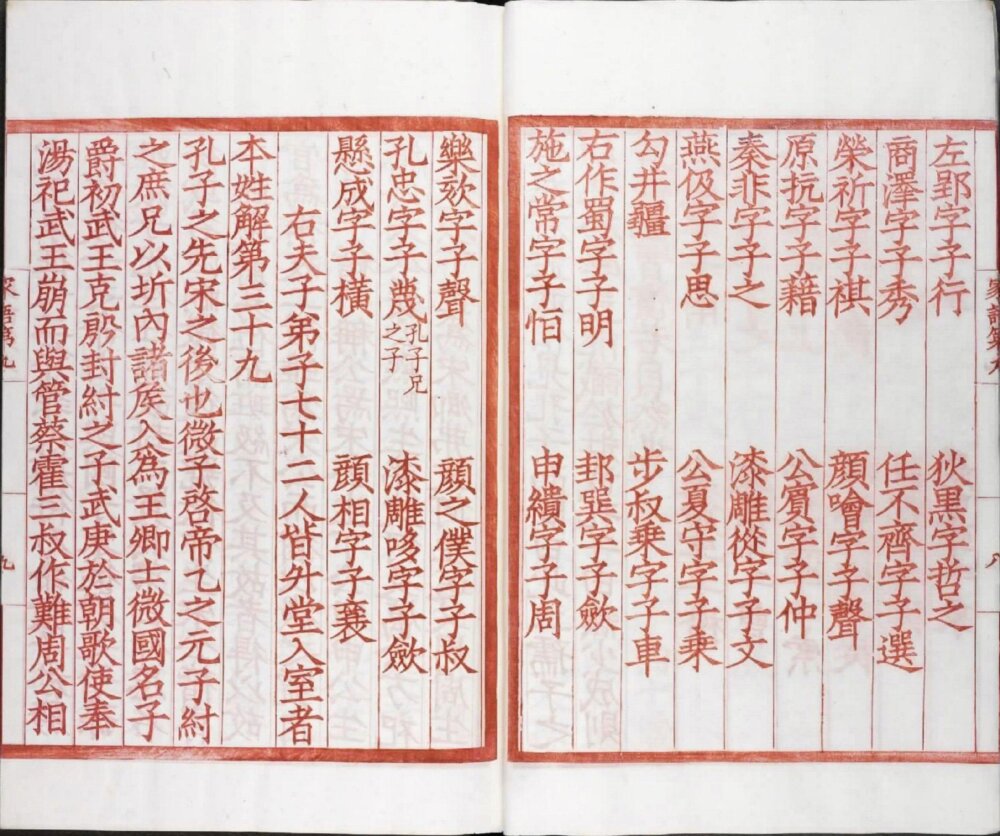 左郢字子行　狄黑字哲之
商澤字子秀　任不齊字子選
榮祈字子祺　顏噲字子聲
原抗字子籍　公賔字子仲
秦非字子之　漆雕從字子文
燕伋字子思　公夏守字子乗
勾井疆　步叔乗字子車
右作蜀字子明　邽巽字子歛
施之常字子恒　申繢字子周
樂欬字子聲　顏之僕字子叔
孔忠字子蔑孔子兄之子　漆雕哆字子歛
懸成字子橫　顏相字子襄
右夫子弟子七十二人皆升堂入室者
本姓解第三十九
孔子之先宋之後也微子啓帝乙之元子紂
之庶兄以圻內諸矦入為王卿士微國名子
爵初武王克殷封紂之子武庚於朝歌使奉
湯祀武王崩而與管蔡霍三叔作難周公相